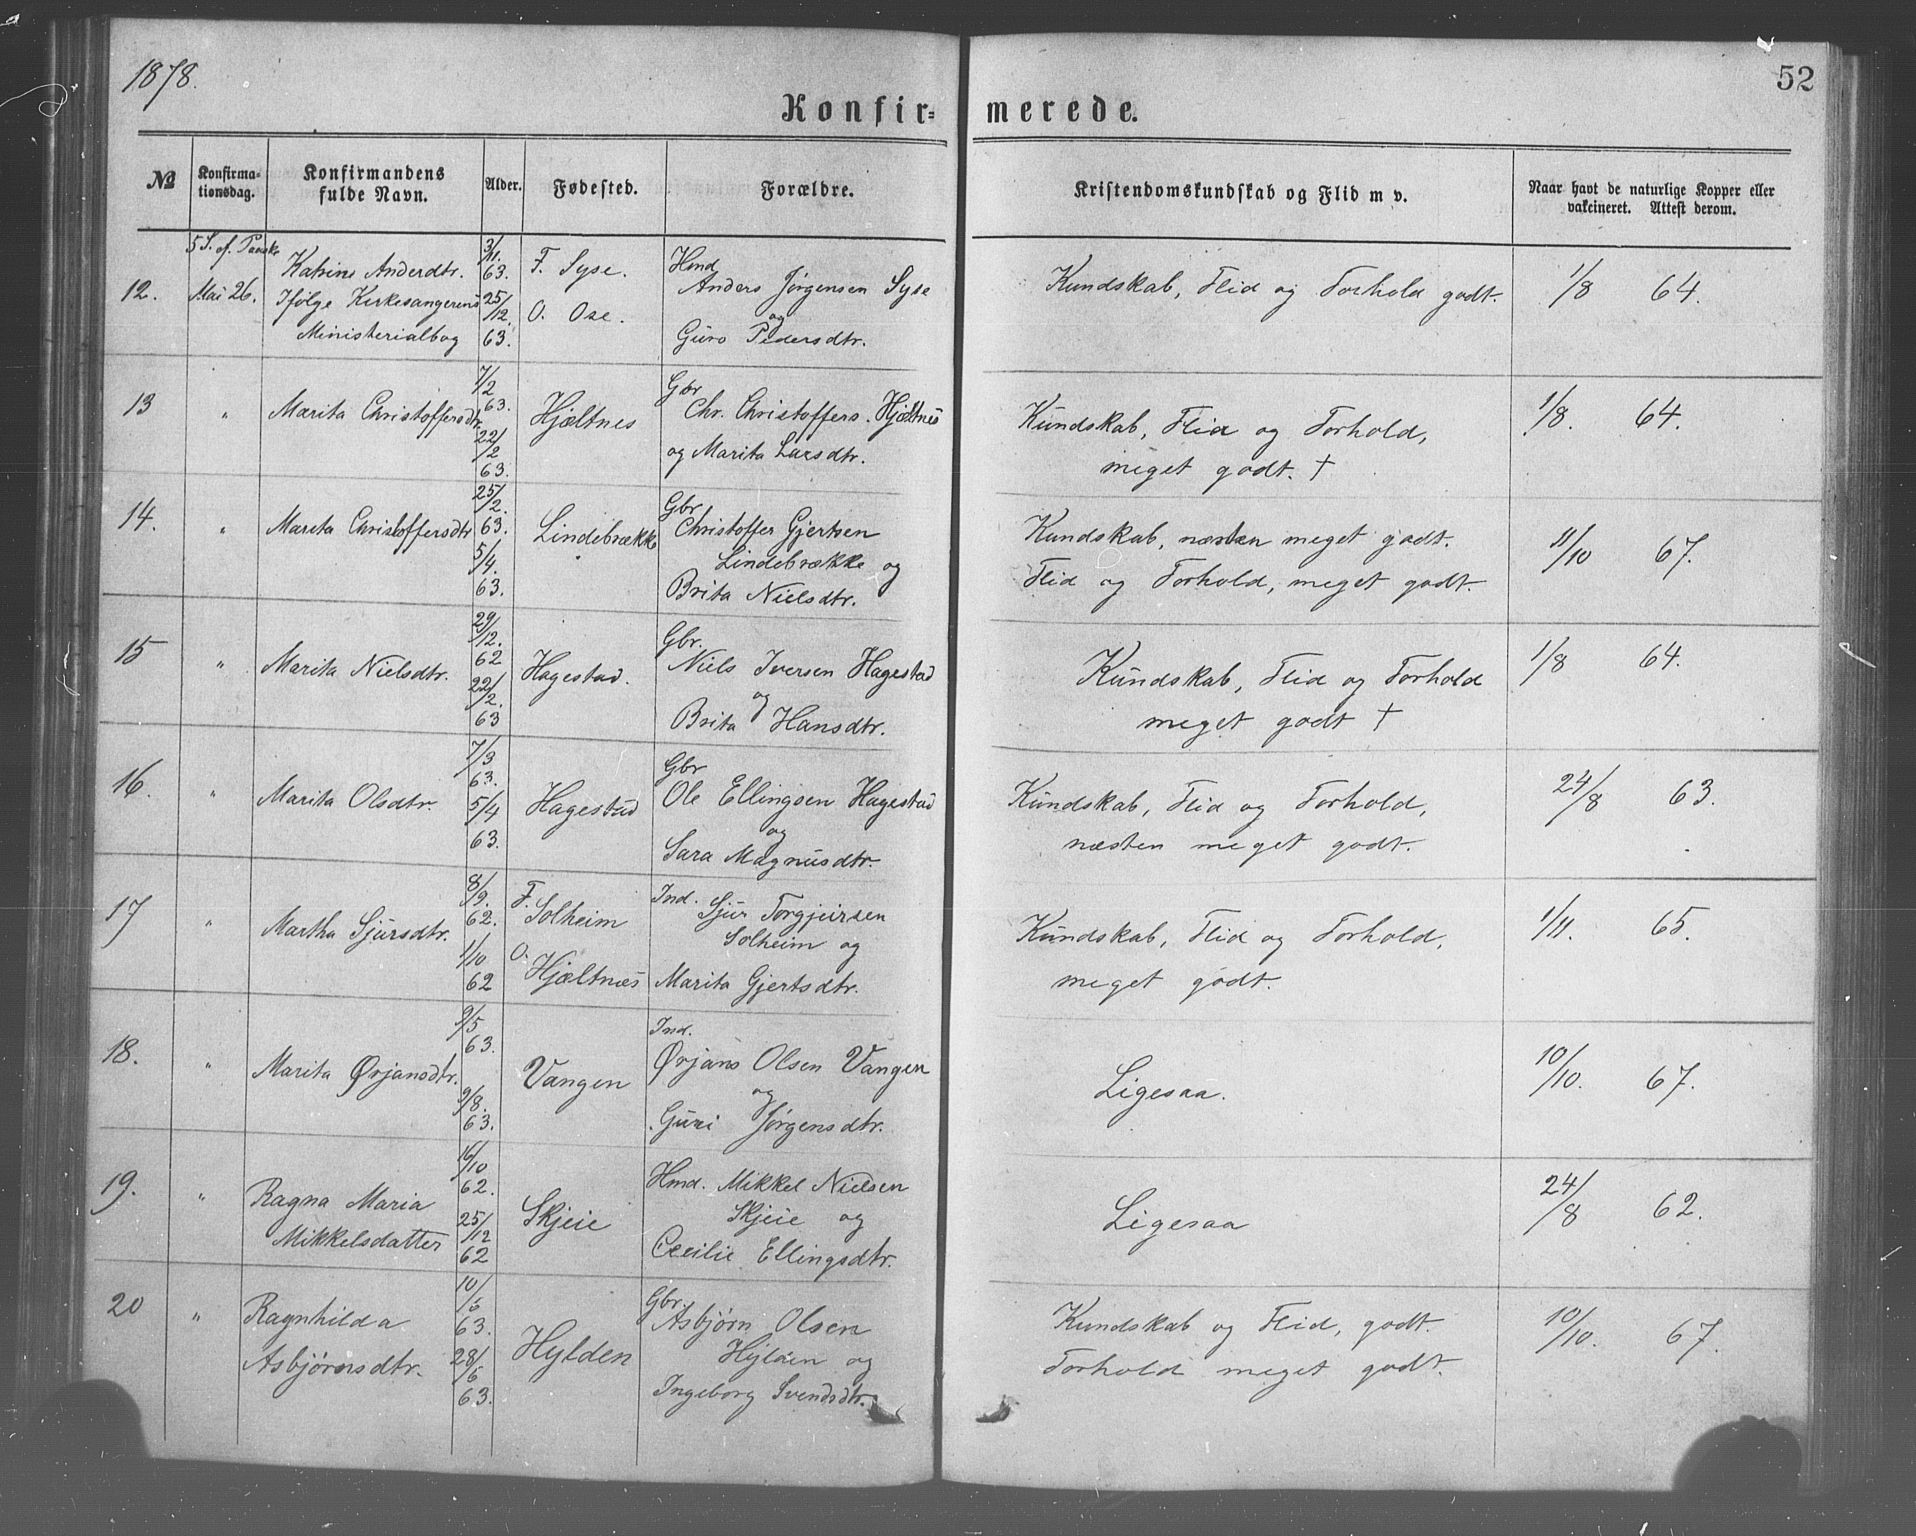 1878.
52
Konfir= merede.
№
Konfirma-
tionsdag.
Konfirmandens
fulde Navn.
Alder.
Fødested.
Forældre.
Kristendomskundskab og Flid m v.
Naar havt de naturlige Kopper eller
vakcineret. Attest derom.
12.
5 S. ef. Paaske
Mai 26.
Katrine Andersdtr.
Ifølge Kirkesangerens
Ministerialbog
3/11.
63.
25/12.
63.
F. Syse.
O. Ose.
Hmd
Anders Jørgensen Syse
og
Guro Pedersdtr.
Kundskab, Flid og Forhold godt.
1/8 64.
13
"
Marita Christoffersdtr.
7/2
63.
22/2
63.
Hjæltnes
Gbr
Chr. Christoffers. Hjæltnes
og Marita Larsdtr.
Kundskab, Flid og Forhold,
meget godt. †
1/8. 64.
14.
"
Marita Christoffersdtr
25/2.
63.
5/4.
63.
Lindebrække
Gbr
Christoffer Gjertsen
Lindebrække og
Brita Nielsdtr.
Kundskab, næsten meget godt.
Flid og Forhold, meget godt.
11/10 67.
15
"
Marita Nielsdtr.
29/12.
62
22/2.
63
Hagestad.
Gbr.
Niels Iversen Hagestad
og
Brita Hansdtr.
Kundskab, Flid og Forhold
meget godt †
1/8 64.
16.
"
Marita Olsdtr.
7/3
63.
5/4
63.
Hagestad
Gbr
Ole Ellingsen Hagestad
og
Sara Magnusdtr.
Kundskab, Flid og Forhold,
næsten meget godt.
24/8 63.
17
"
Martha Sjursdtr.
8/9.
62.
1/10
62
F.
Solheim
O.
Hjæltnes
Ind. Sjur Torgjeirsen
Solheim og
Marita Gjertsdtr.
Kundskab, Flid og Forhold,
meget godt.
1/11. 65.
18.
"
Marita Ørjansdtr.
9/5
63.
9/8.
63.
Vangen
Ind.
Ørjans Olsen Vangen
og
Guri Jørgensdtr.
Ligesaa.
10/10. 67.
19.
"
Ragna Maria
Mikkelsdatter
16/10
62.
25/12
62
Skjeie
Hmd. Mikkel Nielsen
Skjeie og
Cecilie Ellingsdtr.
Ligesaa
24/8 62.
20
"
Ragnhilda
Asbjørnsdtr.
10/5
63.
28/6
63.
Hylden
Gbr.
Asbjørn Olsen
Hylden og
Ingeborg Svendsdtr.
Kundskab og Flid, godt.
Forhold meget godt.
10/10. 67.